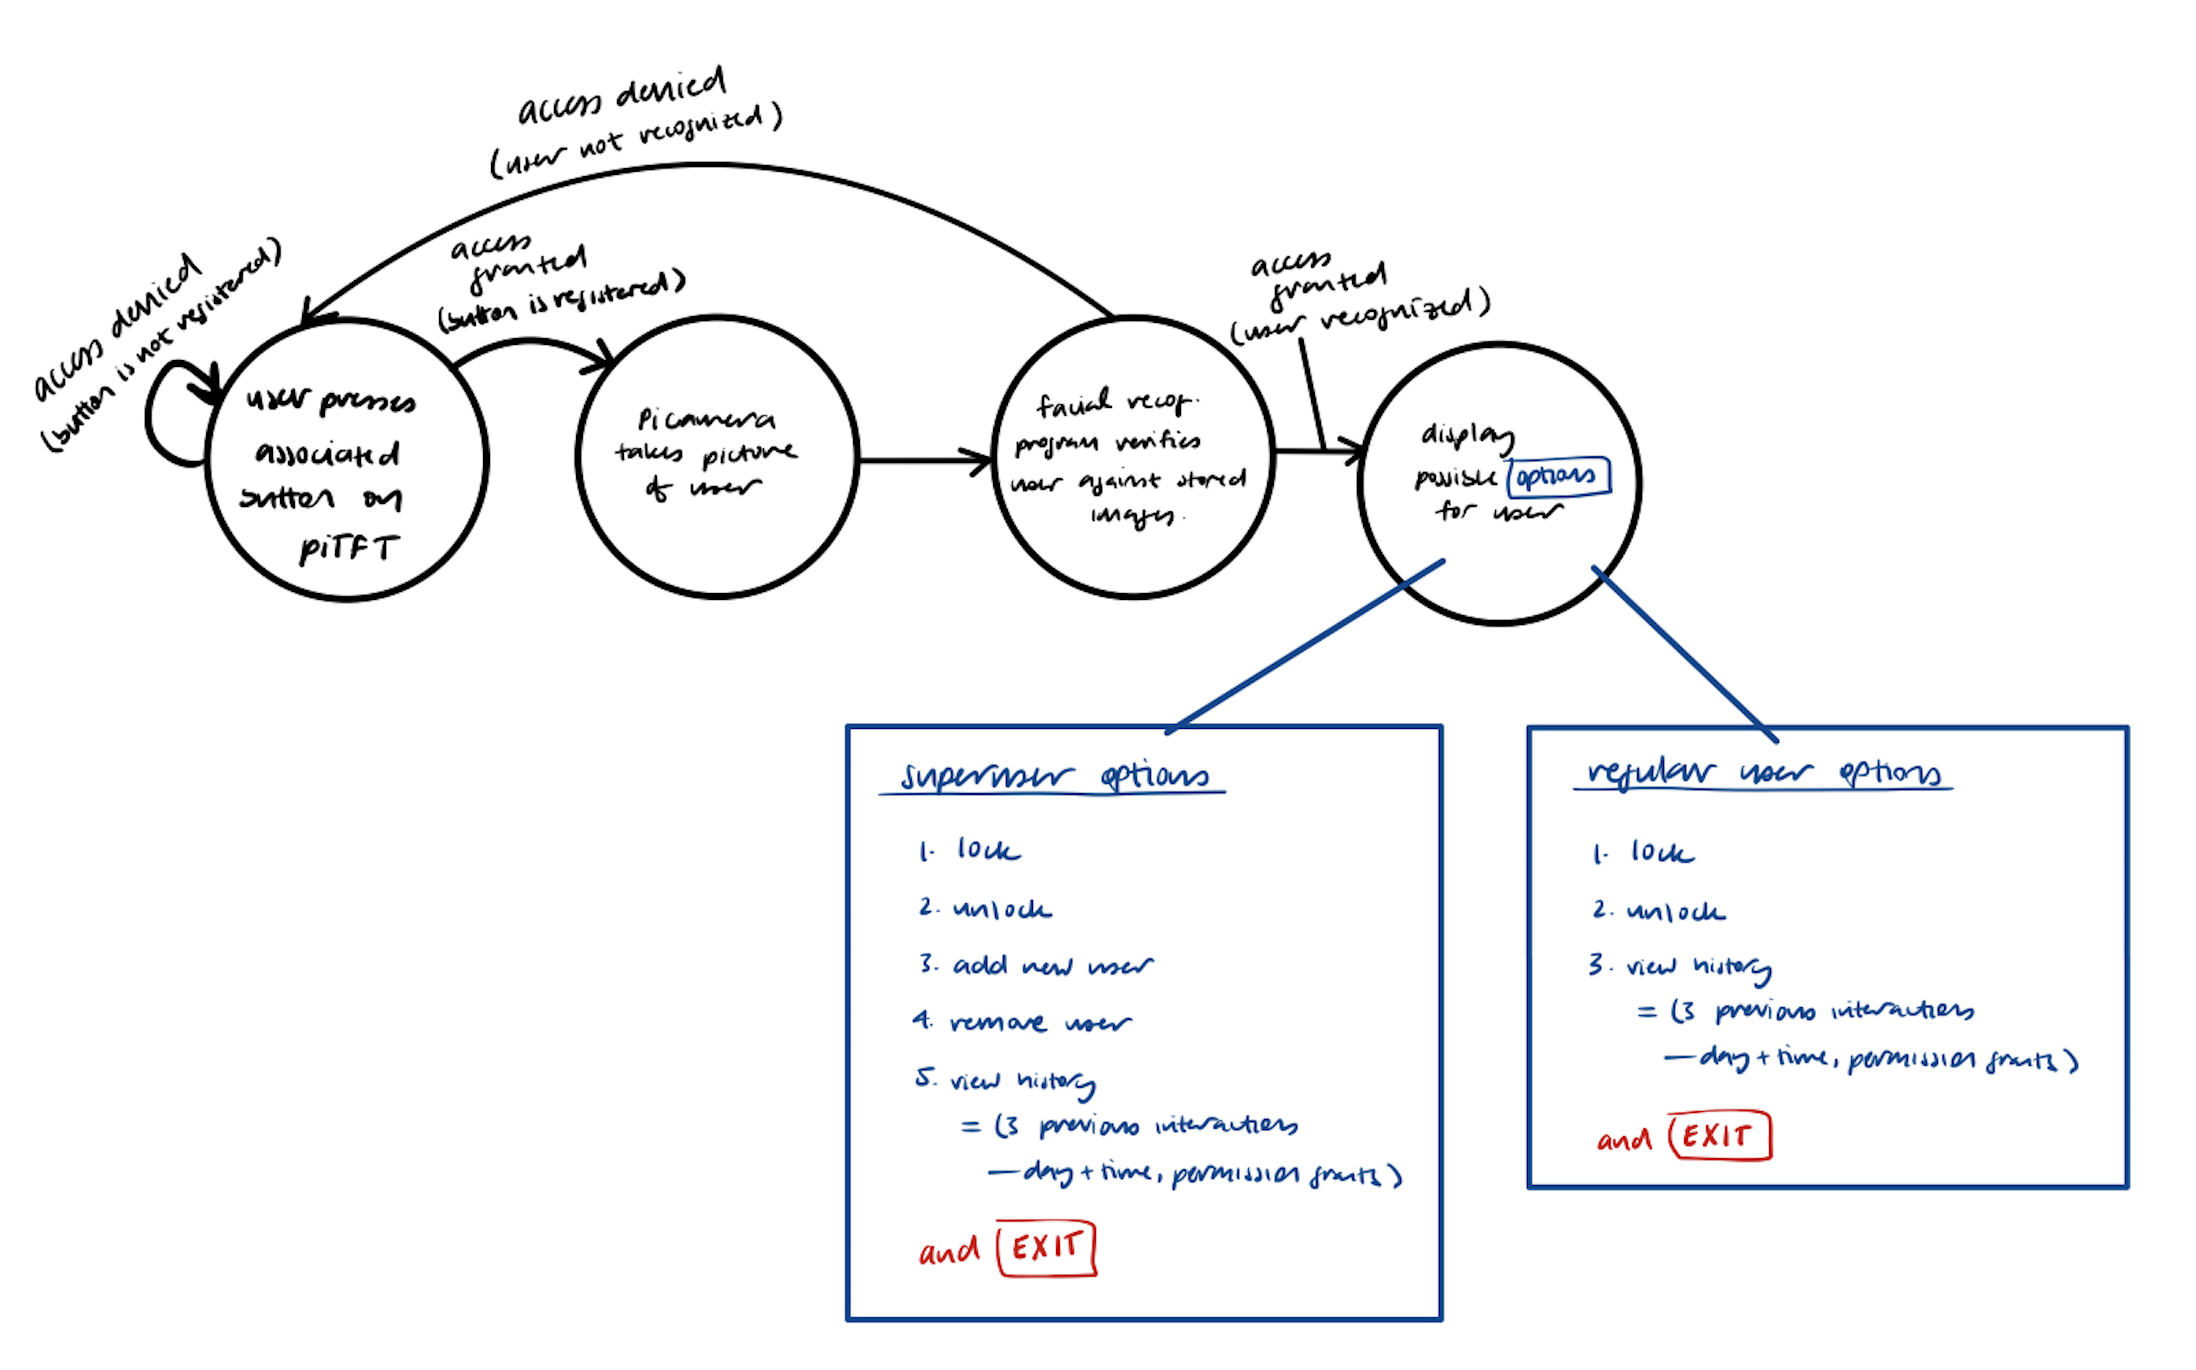 access denied
(user not recognized)
access denied
(button is not registered)
access
granted
(button is registered)
access
granted
(user recognized)
user presses
associated
button on
piTFT
Picamera
takes picture
of user
facial recog.
program verifies
user against stored
images.
display
possible options
for user
superuser options
1. lock
2. unlock
3. add new user
4. remove user
5. view history
= (3 previous interactions
— day + time, permission grants)
and EXIT
regular user options
1. lock
2. unlock
3. view history
= (3 previous interactions
— day + time, permission grants)
and EXIT